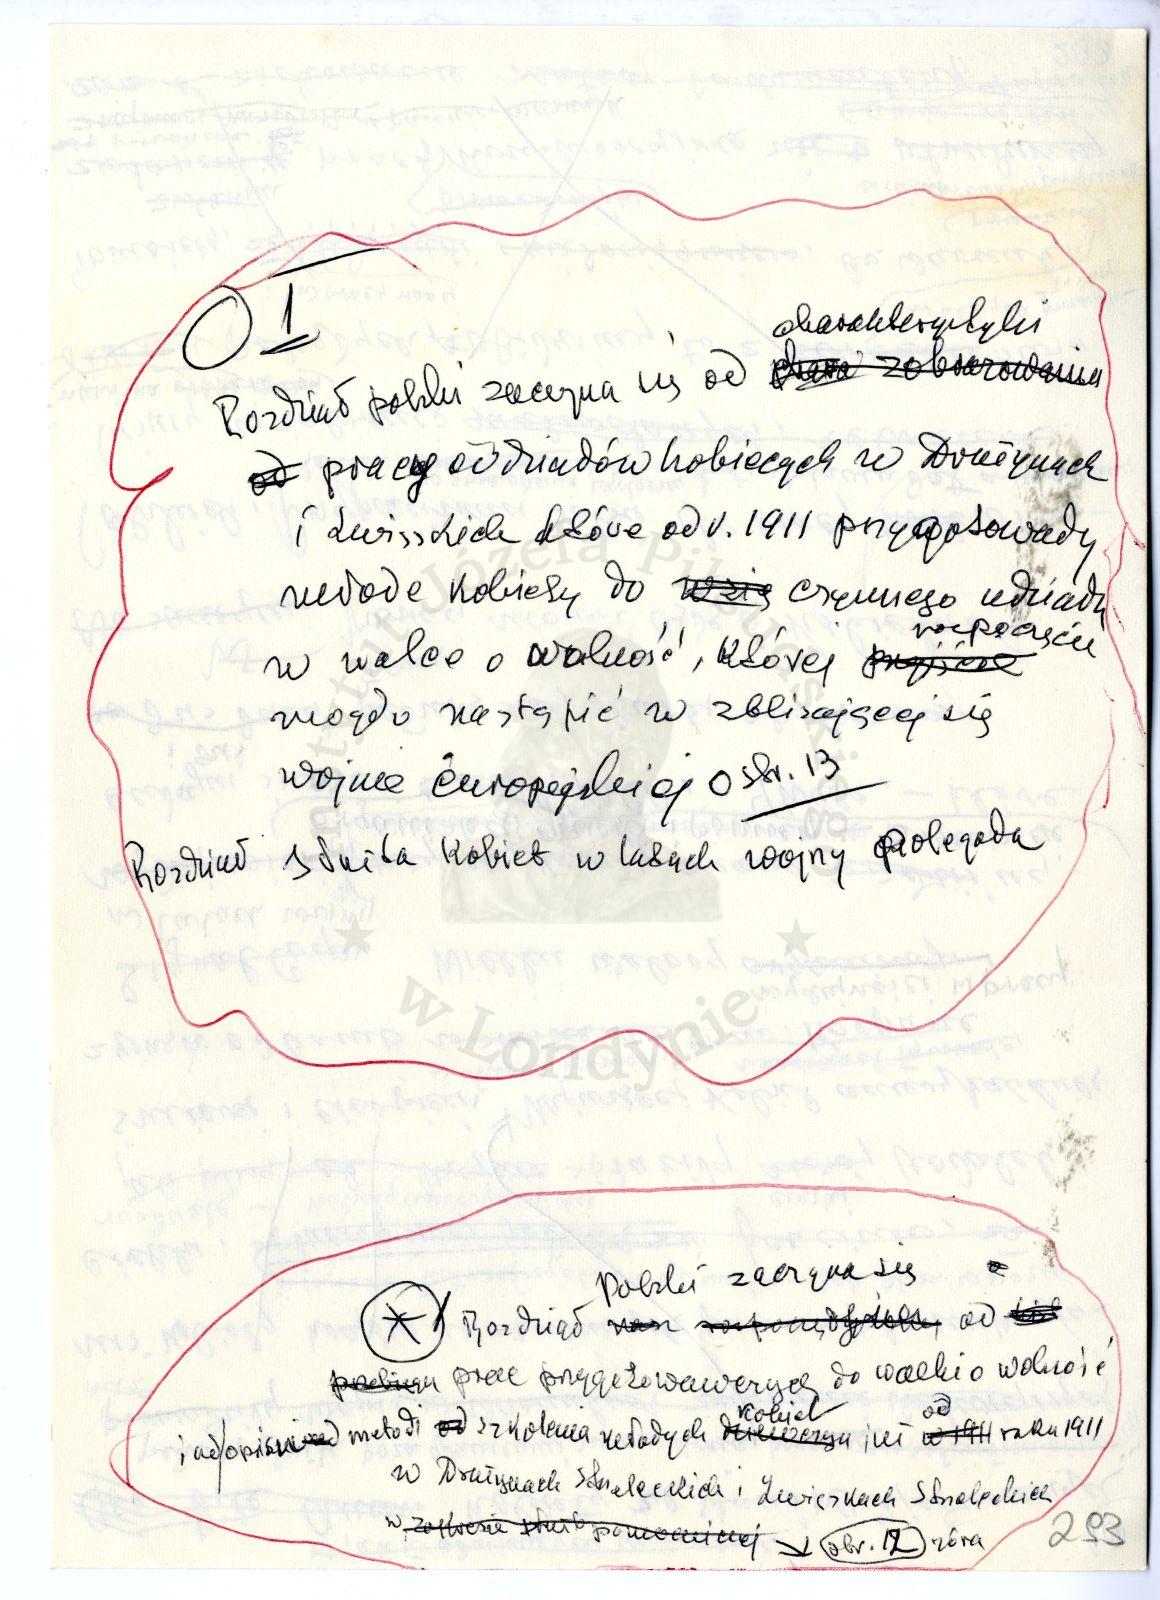 1
charakterystyki
Rozdział polski zaczyna się od zobrazowania
od pracy oddziałów kobiecych w Drużynach
i Związkach które od r. 1911 przygotowały
młode kobiety do czynnego udziału
rozpoczęcie
w walce o wolność, której przyjście
mogło nastąpić w zbliżającej się
wojnie europejskiej str. 13
Rozdział Służba Kobiet w latach wojny polegała
Instytut Józefa Piłsudskiego
w Londynie
Polski zaczyna się
Rozdział nasz od
przebiegu prac przygotowawczych do walki o wolność
kobiet od
i od opisu metod od szkolenia młodych dziewcząt już w 1911 roku 1911
w Drużynach Strzeleckich i Związkach Strzeleckich
w zakresie służb pomocniczej str. 12 góra
293